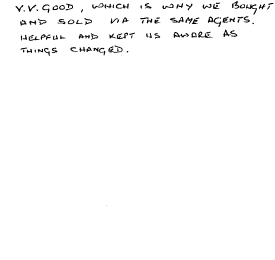 V.V. GOOD, WHICH IS WHY WE BOUGHT
AND SOLD VIA THE SAME AGENTS.
HELPFUL AND KEPT US AWARE AS
THINGS CHANGED.